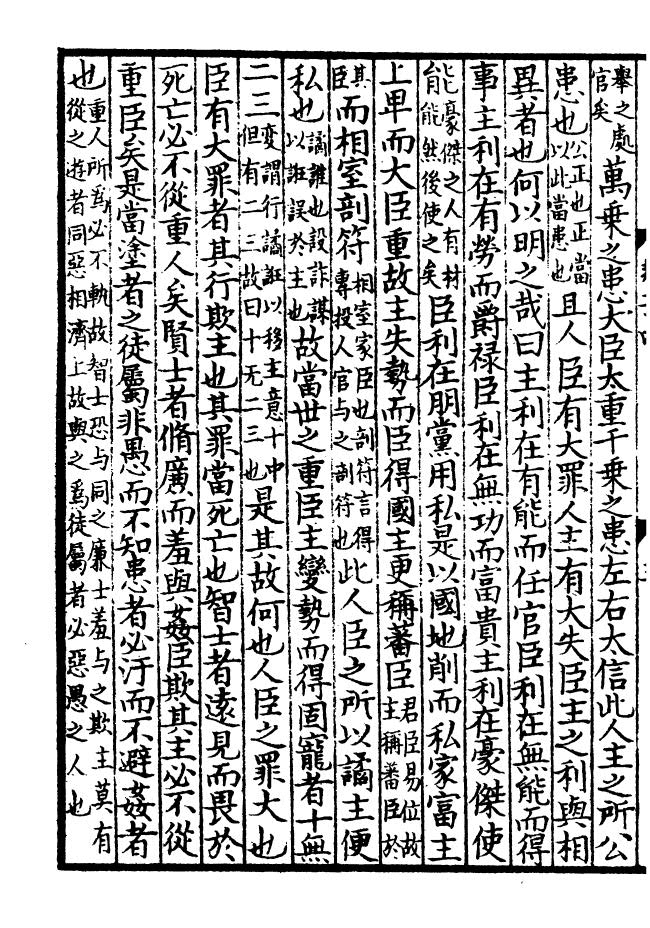 舉之處官矣萬乘之患大臣太重千乘之患左右太信此人主之所公
患也公正也正當以此當患也且人臣有大罪人主有大失臣主之利與相
異者也何以明之哉曰主利在有能而任官臣利在無能而得
事主利在有勞而爵祿臣利在無功而富貴主利在豪傑使
能豪傑之人有材能能然後使之矣臣利在朋黨用私是以國地削而私家富主
上卑而大臣重故主失勢而臣得國主更稱蕃臣君臣易位故主稱蕃臣於
其臣而相室剖符相室家臣也剖符言得專授人官与之剖符也此人臣之所以譎主便
私也譎誑也設詐謀以誑誤於主也故當世之重臣主變勢而得固寵者十無
二三變謂行譎誑以移主意十中但有二三故曰十无二三也是其故何也人臣之罪大也
臣有大罪者其行欺主也其罪當死亡也智士者遠見而畏於
死亡必不從重人矣賢士者脩廣而羞與姦臣欺其主必不從
重臣矣是當塗者之徒屬非愚而不知患者必汙而不避姦者
也重人所爲必不軌故智士恐与同之廉士羞与之欺主莫有從之遊者同惡相濟上故與之爲徒屬者必惡愚之人也